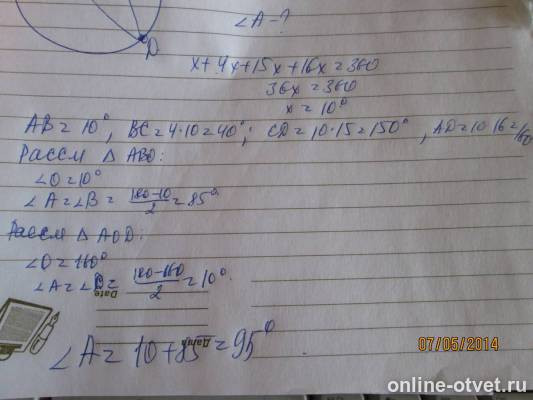 D
∠A-?
x+4x+15x+16x=360
36x=360
x=10°
AB=10°, BC=4·10=40°; CD=10·15=150°, AD=10·16=160
Рассм △ ABO:
∠O=10°
∠A=∠B= (180-10)/2 =85°
Рассм △ AOD:
∠O=160°
∠A=∠D= (180-160)/2 =10°.
Date
Дата
∠A= 10+85=95°
07/05/2014
online-otvet.ru